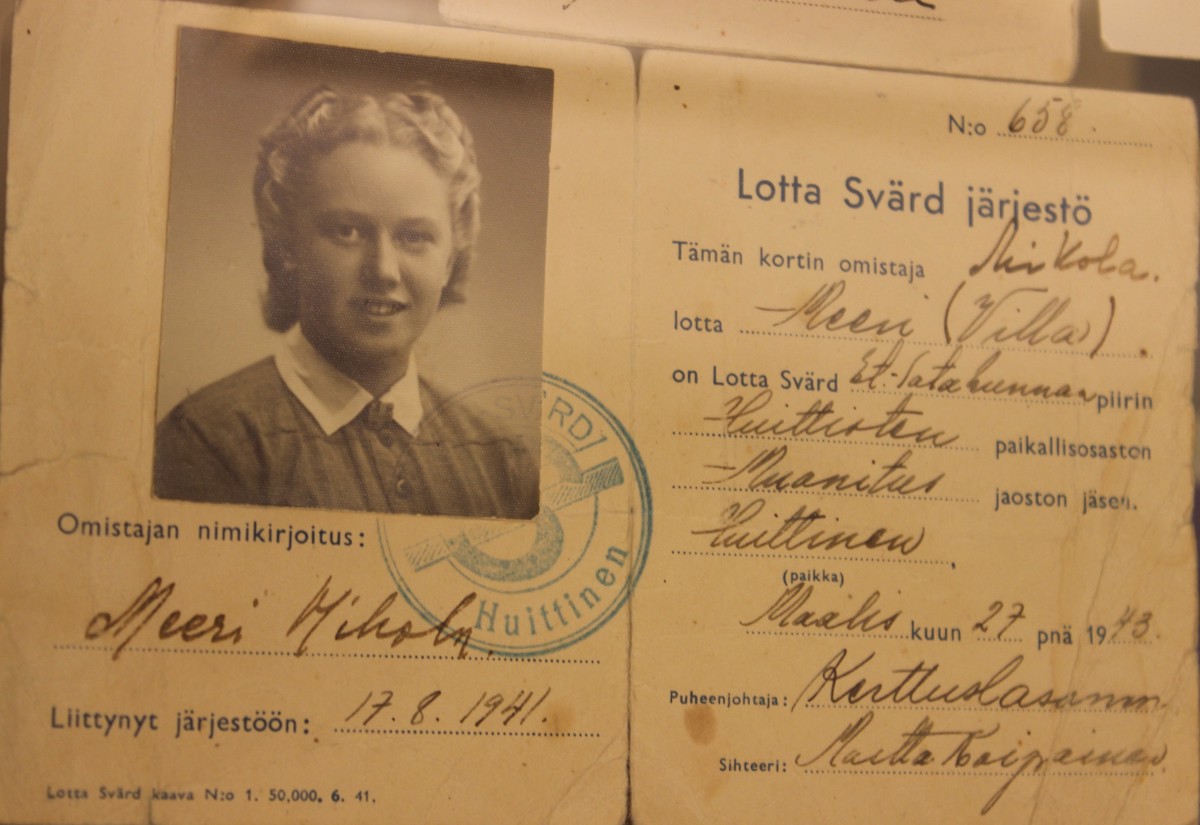 Omistajan nimikirjoitus:
Meeri
Liittynyt järjestöön: 17.8.1941.
Lotta Svärd kaava N:o 1. 50,000. 6. 41.
SVÄRD
Huittinen
N:o 658.
Lotta Svärd järjestö
Tämän kortin omistaja
lotta Meeri (Villa).
on Lotta Svärd Et.-Satakunnan piirin
Huittisten paikallisosaston
Muonitus jaoston jäsen.
Huittinen,
(paikka)
Maalis kuun 27 pnä 1943.
Puheenjohtaja:
Sihteeri: Koipainen